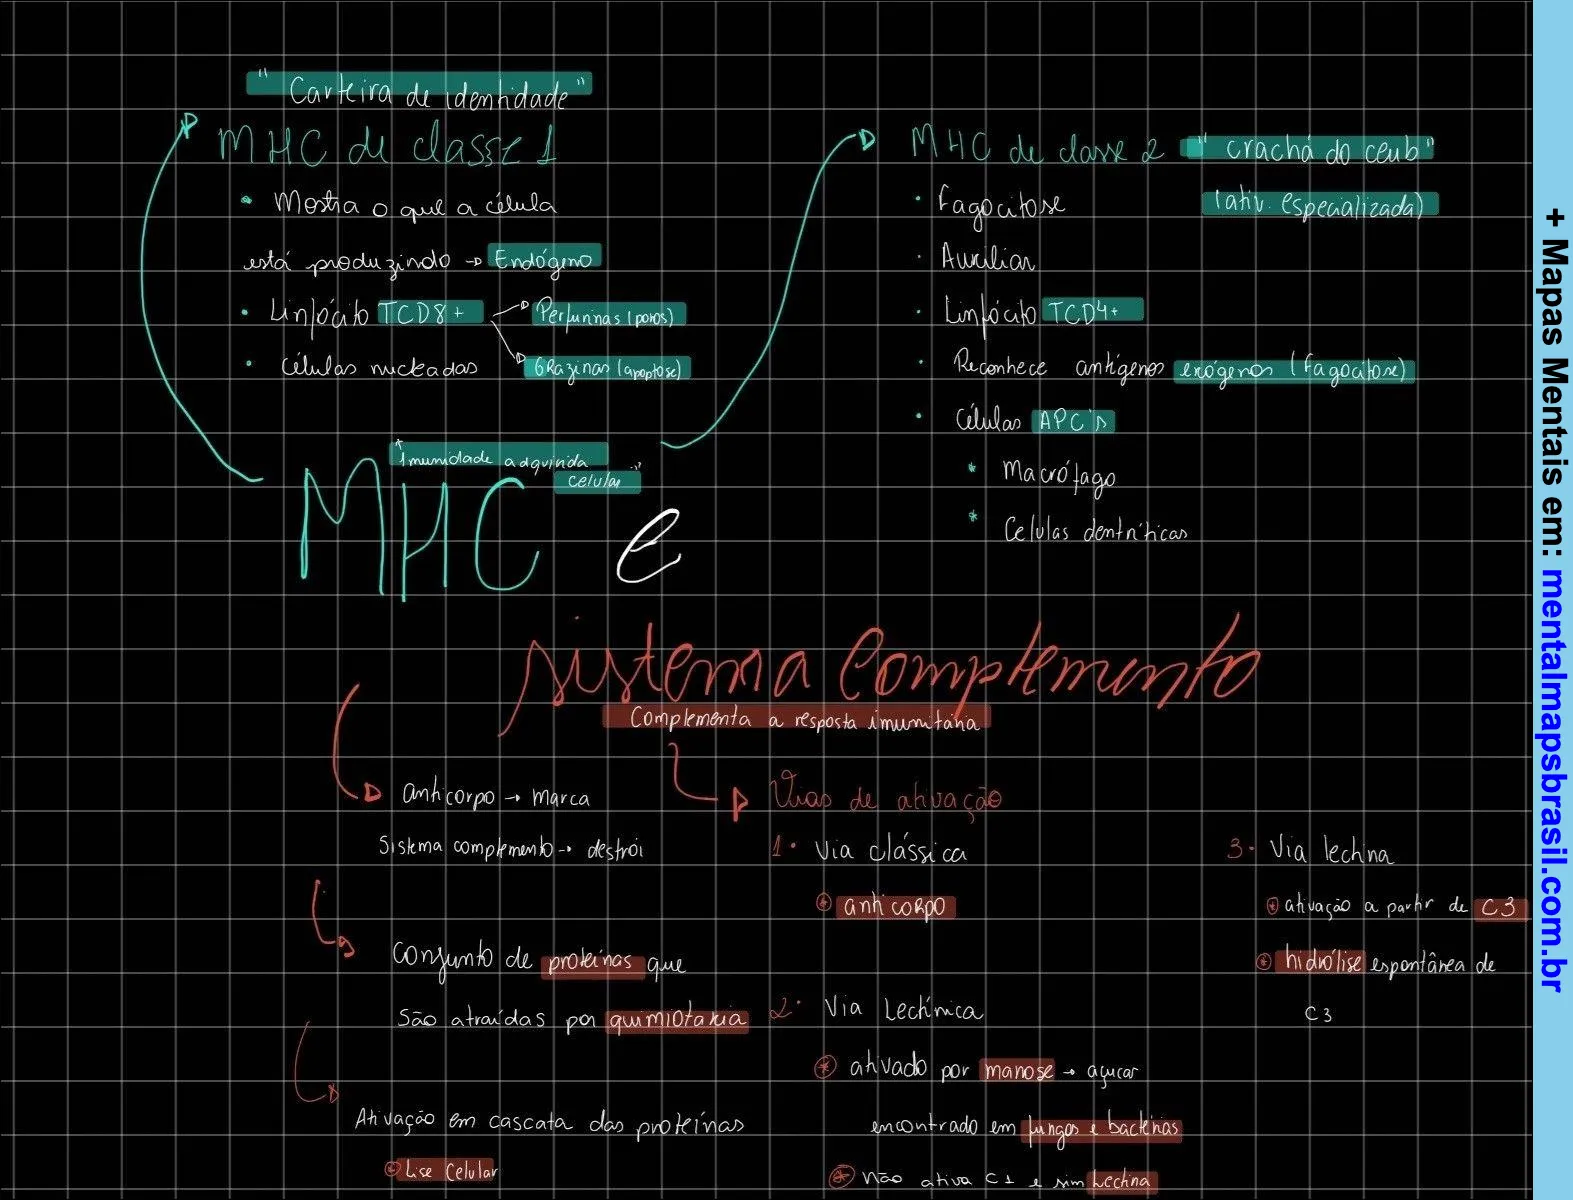 "Carteira de identidade"
MHC de classe 1
• Mostra o que a célula
está produzindo → Endógeno
• Linfócito TCD8+
Perfurinas (poros)
GRazinas (apoptose)
• Células nucleadas
MHC de classe 2 "crachá do ceub"
(ativ. especializada)
• Fagocitose
• Auxiliar
• Linfócito TCD4+
• Reconhece antígenos exógenos (fagocitose)
• Células APC's
* Macrófago
* Celulas dentríticas
"Imunidade adquirida
celular"
MHC e
Sistema Complemento
Complementa a resposta imunitária
anticorpo → marca
Sistema complemento → destrói
Conjunto de proteínas que
São atraídas por quimiotaxia
Ativação em cascata das proteínas
* Lise Celular
Vias de ativação
1. Via clássica
* anticorpo
2. Via Lectínica
* ativado por manose → açucar
encontrado em fungos e bactérias
* Não ativa C1 e sim Lectina
3. Via lectina
* ativação a partir de C3
* hidrólise espontânea de
C3
+ Mapas Mentais em: mentalmapsbrasil.com.br